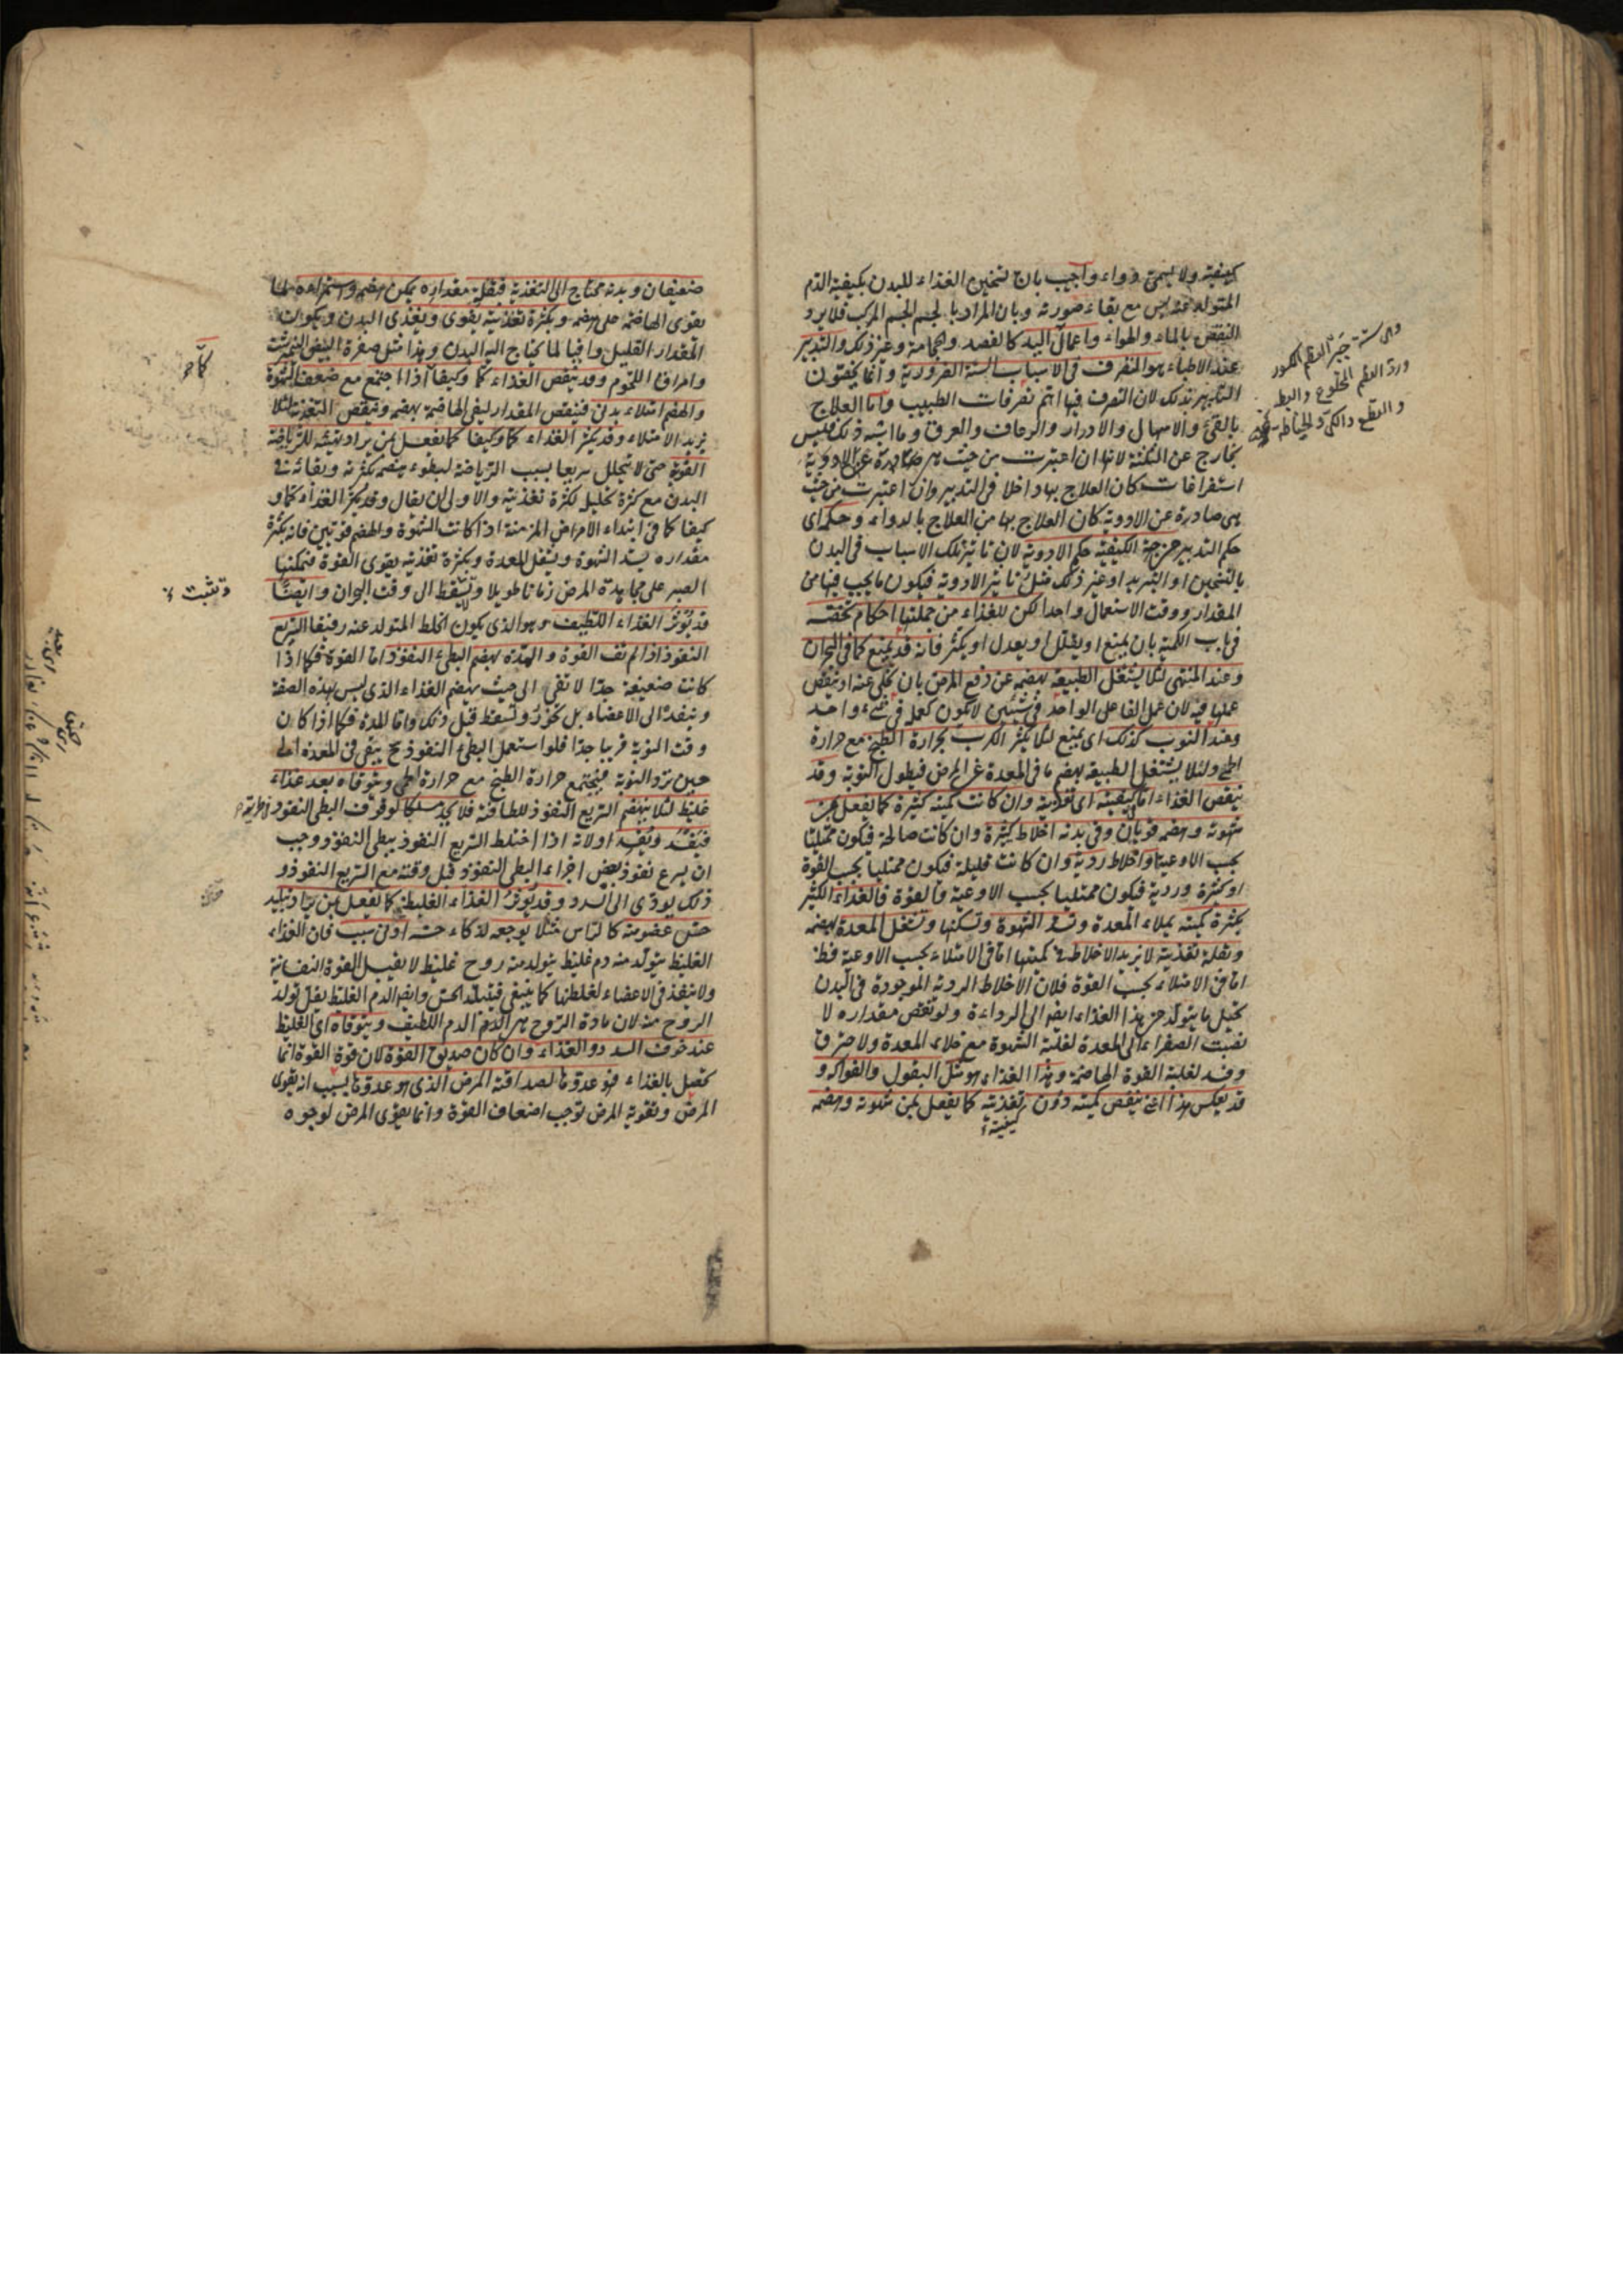 كيفيته ولا يسمى دواء واجيب بان تسخين الغذاء للبدن بكيفية الدم
المتولد عنه ليس مع بقاء صورته وبان المراد بالجسم الجسم المركب فلا يرد
النقض بالماء والهواء واعمال اليد كالفصد والحجامة وغير ذلك والتدبير
عند الاطباء هو التصرف في الاسباب الستة الضرورية وانما يخصون
التدبير بذلك لان التصرف فيها اتم تصرفات الطبيب واما العلاج
بالقئ والاسهال والادرار والرعاف والعرق وما اشبه ذلك فليس
بخارج عن الثلثة لانها ان اعتبرت من حيث هي
استفراغات كان العلاج بها داخلا في التدبير وان اعتبرت من حيث
هي صادرة عن الادوية كان العلاج بها من العلاج بالدواء وحكمه اى
حكم التدبير من جهة الكيفية حكم الادوية لان تاثير تلك الاسباب في البدن
بالتسخين او التبريد او غير ذلك مثل تاثير الادوية فيكون ما يجب فيها من
المقدار ووقت الاستعمال واحدا لكن للغذاء من جملتها احكام تخصه
في باب الكمية بان يمنع او يقلل او يعدل او يكثر فانه قد يمنع كما في البحران
وعند المنتهى لئلا يشتغل الطبيعة بهضمه عن دفع المرض بان تخلى عنه او ينقص
عملها فيه لان عمل الفاعل الواحد في شيئين لا يكون كعمله في شئ واحد
وعند النوب كذلك اى يمنع لئلا يكثر الكرب بحرارة الطبخ مع حرارة
الحمى ولئلا يشتغل الطبيعة بهضم ما في المعدة عن المرض فيطول النوبة وقد
ينقص الغذاء اما كيفيته اى تغذيته وان كانت كميته كثيرة كما يفعل بمن
شهوته وهضمه قويان وفي بدنه اخلاط كثيرة وان كانت صالحة فيكون ممتليا
بحسب الاوعية او اخلاط ردية وان كانت قليلة فيكون ممتليا بحسب القوة
او كثيرة وردية فيكون ممتليا بحسب الاوعية والقوة فالغذاء الكثير
بكثرة كميته يملاء المعدة وتسد الشهوة وتسكنها وتشغل المعدة بهضمه
وبقلة تغذيته لا يزيد الاخلاط في كميتها اما في الامتلاء بحسب الاوعية فظ
اما في الامتلاء بحسب القوة فلان الاخلاط الردية الموجودة في البدن
تحيل ما يتولد من هذا الغذاء ايضا الى الرداءة ولو نقص مقداره لا
نصبت الصفراء الى المعدة لغلبة الشهوة مع خلاء المعدة ولاحترق
وفسد لغلبة القوة الهاضمة وهذا الغذاء هو مثل البقول والفواكه و
قد يعكس هذا اعنى ينقص كميته دون تغذيته كما يفعل بمن شهوته وهضمه
كيفيته
وهى ستة جبر العظم المكسور
ورد العظم المخلوع والبط
والقطع والكى والخياطة
ضعيفان وبدنه محتاج الى التغذية فبقلة مقداره يمكن هضمه واستمراءه لما
يقوى الهاضمة على هضمه وبكثرة تغذيته يقوى ويغذى البدن ويكون
المقدار القليل وافيا لما يحتاج اليه البدن وهذا مثل صفرة البيض النيمبرشت
وامراق اللحوم وقد ينقص الغذاء كما وكيفا اذا اجتمع مع ضعف الشهوة
والهضم امتلاء بدن فينقص المقدار ليفى الهاضمة بهضمه وينقص التغذية لئلا
يزيد الامتلاء وقد يكثر الغذاء كما وكيفا كما يفعل بمن يراد تهيئته للرياضة
القوية حتى لا يتحلل سريعا بسبب الرياضة لبطوء هضمه بكثرته وبقائه في
البدن مع كثرة تحليل لكثرة تغذيته والاولى ان يقال وقد يكثر الغذاء كما و
كيفا كما في ابتداء الامراض المزمنة اذا كانت الشهوة والهضم قويتين فانه بكثرة
مقداره يسد الشهوة ويشغل المعدة وبكثرة تغذيته يقوى القوة فيمكنها
الصبر على مجاهدة المرض زمانا طويلا ولا تسقط الى وقت البحران وايضا
قد يؤثر الغذاء اللطيف وهو الذى يكون الخلط المتولد عنه رقيقا السريع
النفوذ اذا لم تف القوة والمدة بهضم البطئ النفوذ اما القوة فكما اذا
كانت ضعيفة جدا لا تفى الى حيث بهضم الغذاء الذى ليس بهذه الصفة
وتنفذه الى الاعضاء بل تخور وتسقط قبل ذلك واما المدة فكما اذا كان
وقت النوبة قريبا جدا فلو استعمل البطئ النفوذ ح يبقى في المعدة الى
حين ترد النوبة فيجتمع حرارة الطبخ مع حرارة الحمى ويتوقاه بعد غذاء
غليظ لئلا ينهضم السريع النفوذ للطافته فلا يجد مسلكا لوقوف البطى النفوذ
فيفسد ويفسد او لانه اذا اختلط السريع النفوذ ببطى النفوذ وجب
ان يسرع نفوذ بعض اجزاء البطى النفوذ قبل وقته مع السريع النفوذ و
ذلك يودى الى السدد وقد يؤثر الغذاء الغليظ كما يفعل بمن يراد تبليد
حس عضو منه كالراس مثلا يوجعه لذكاء حسه ادنى سبب فان الغذاء
الغليظ يتولد منه دم غليظ يتولد منه روح غليظ لا يقبل القوة النفسانية
ولا تنفذ في الاعضاء لغلظها كما ينبغى فيتبلد الحس وايضا الدم الغليظ يقل تولد
الروح منه لان مادة الروح هي الدم اللطيف ويتوقاه اى الغليظ
عند خوف السدد والغذاء وان كان صديق القوة لان قوة القوة انما
تحصل بالغذاء فهو عدوها لصداقته المرض الذى هو عدوها بسبب انه يقوى
المرض وتقوية المرض توجب اضعاف القوة وانما يقوى المرض لوجوه
وتثبت